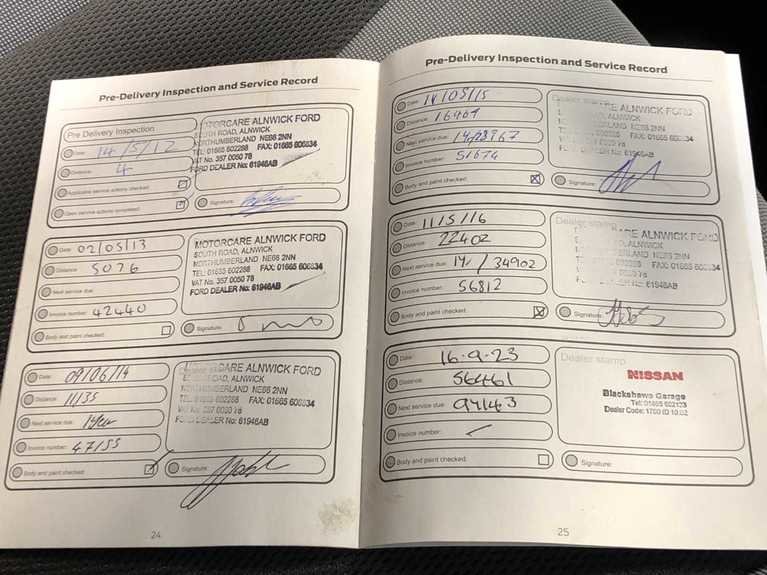 Pre-Delivery Inspection and Service Record
Pre Delivery Inspection
Date: 14/5/12
Distance: 4
Applicable service actions checked:
Open service actions completed:
MOTORCARE ALNWICK FORD
SOUTH ROAD, ALNWICK
NORTHUMBERLAND NE66 2NN
TEL: 01665 602288 FAX: 01665 606834
VAT No. 357 0050 78
FORD DEALER No: 61946AB
Signature:
Date: 02/05/13
Distance: 5076
Next service due:
Invoice number: 42440
Body and paint checked:
MOTORCARE ALNWICK FORD
SOUTH ROAD, ALNWICK
NORTHUMBERLAND NE66 2NN
TEL: 01665 602288 FAX: 01665 606834
VAT No. 357 0050 78
FORD DEALER No: 61946AB
Signature:
Date: 09/06/14
Distance: 11135
Next service due: 1 year
Invoice number: 47155
Body and paint checked:
CARE ALNWICK FORD
ROAD, ALNWICK
NORTHUMBERLAND NE66 2NN
TEL: 01665 602288 FAX: 01665 606834
VAT No. 357 0050 78
FORD DEALER No: 61946AB
Signature:
24
Pre-Delivery Inspection and Service Record
Date: 14/05/15
Distance: 16469
Next service due:
Invoice number: 51674
Body and paint checked:
Dealer stamp
CARE ALNWICK FORD
ALNWICK
NE66 2NN
FAX: 01665 606834
61946AB
Signature:
Date: 11/5/16
Distance: 22402
Next service due: 1yr / 34902
Invoice number: 56812
Body and paint checked:
Dealer stamp
CARE ALNWICK FORD
ALNWICK
NE66 2NN
FAX: 01665 606834
61946AB
Signature:
Date: 16-9-23
Distance: 56461
Next service due:
Invoice number:
Body and paint checked:
Dealer stamp
NISSAN
Blackshaws Garage
Tel: 01665 602123
Signature:
25